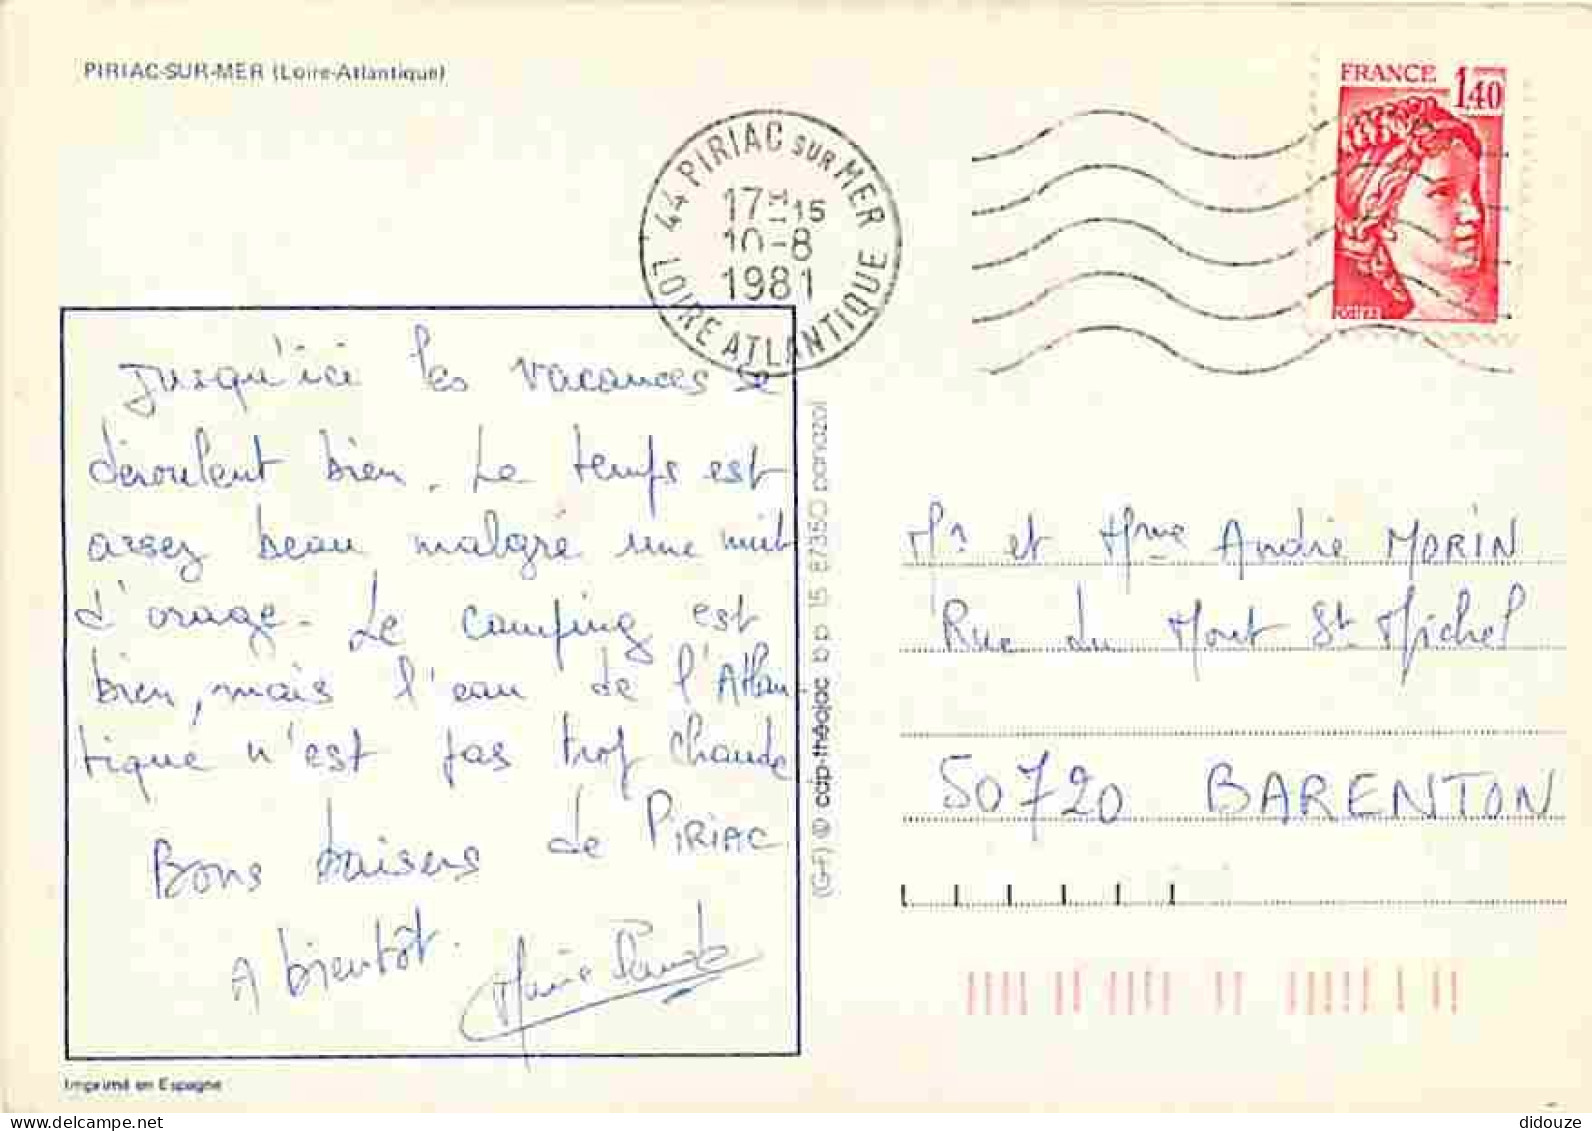 PIRIAC-SUR-MER (Loire-Atlantique)
FRANCE
1,40
POSTES
44 PIRIAC SUR MER
17H15
10-8
1981
LOIRE ATLANTIQUE
Jusqu'ici les vacances se
déroulent bien. Le temps est
assez beau malgré une nuit
d'orage. Le camping est
bien, mais l'eau de l'Atlan-
tique n'est pas trop chaude
Bons baisers de PIRIAC
A bientôt.
Marie
(G-F) © cap-théojac b p 15 87350 panazol
Mr et Mme André MORIN
Rue du Mont St Michel
50720 BARENTON
Imprimé en Espagne
didouze